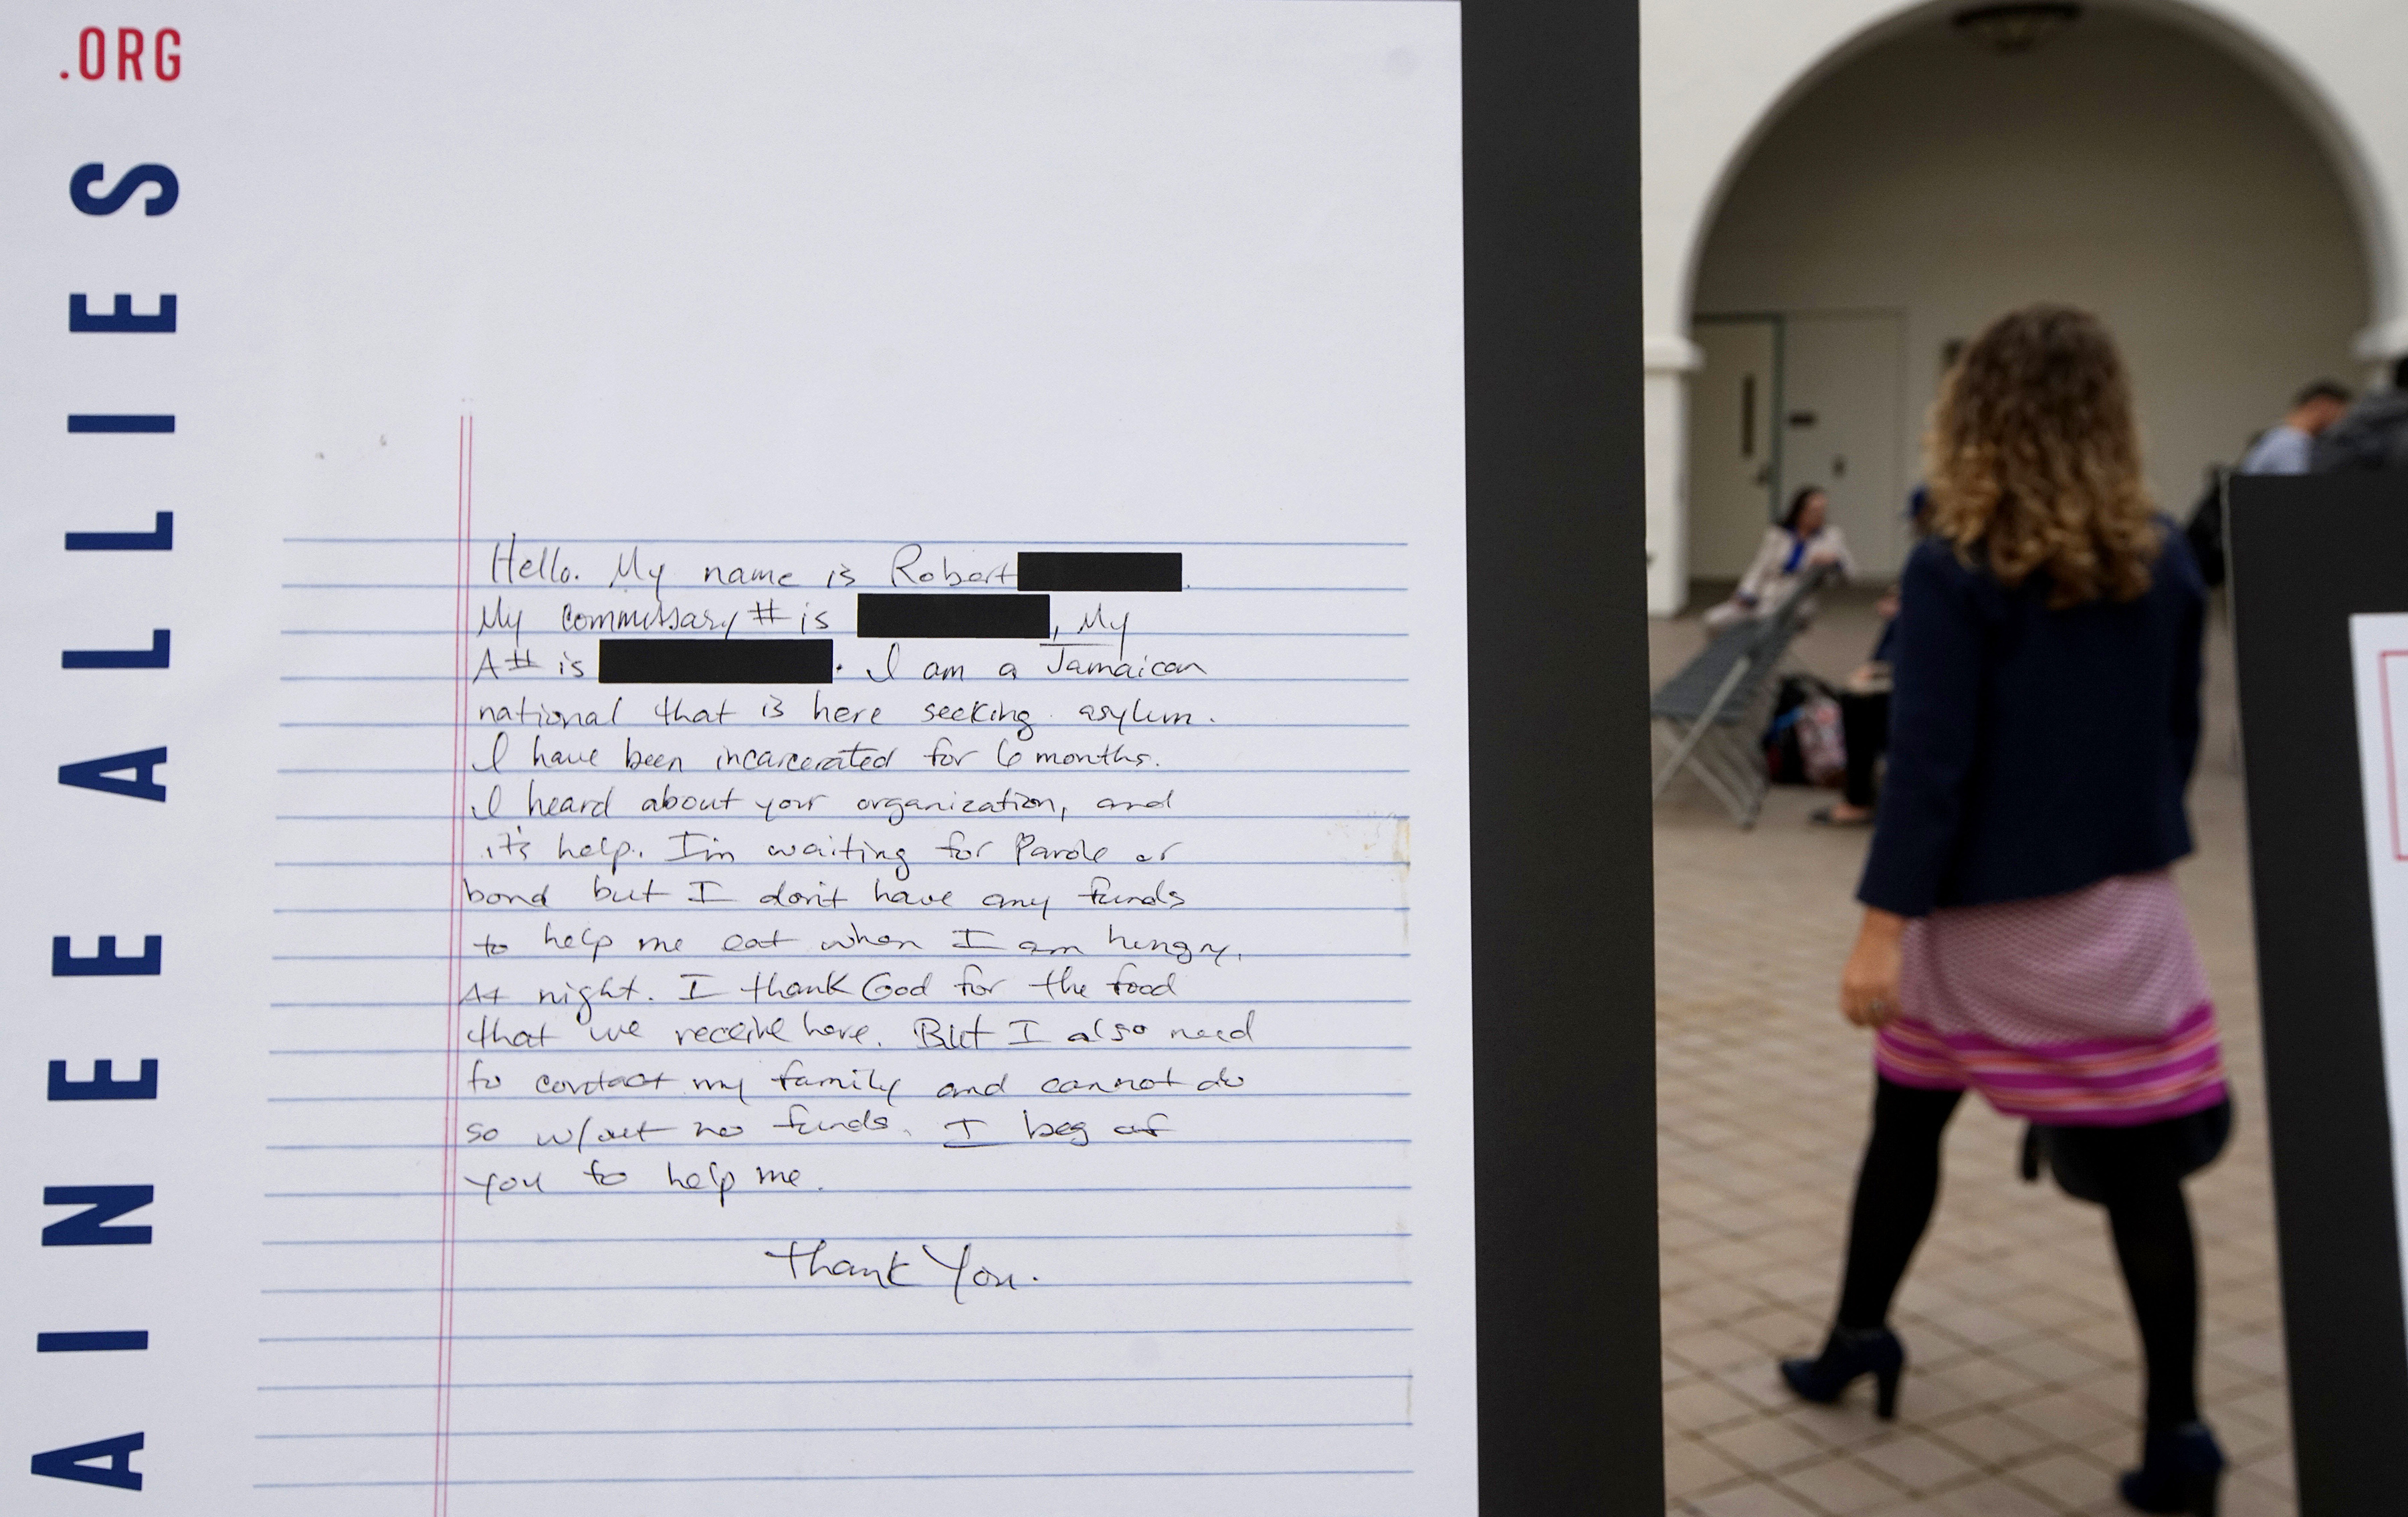 .ORG
AINEE ALLIES
Hello. My name is Robert
My commissary # is , My
A# is . I am a Jamaican
national that is here seeking asylum.
I have been incarcerated for 6 months.
I heard about your organization, and
it's help. I'm waiting for Parole or
bond but I don't have any funds
to help me eat when I am hungry.
At night. I thank God for the food
that we receive here. But I also need
to contact my family and cannot do
so w/out no funds. I beg of
you to help me.
Thank You.